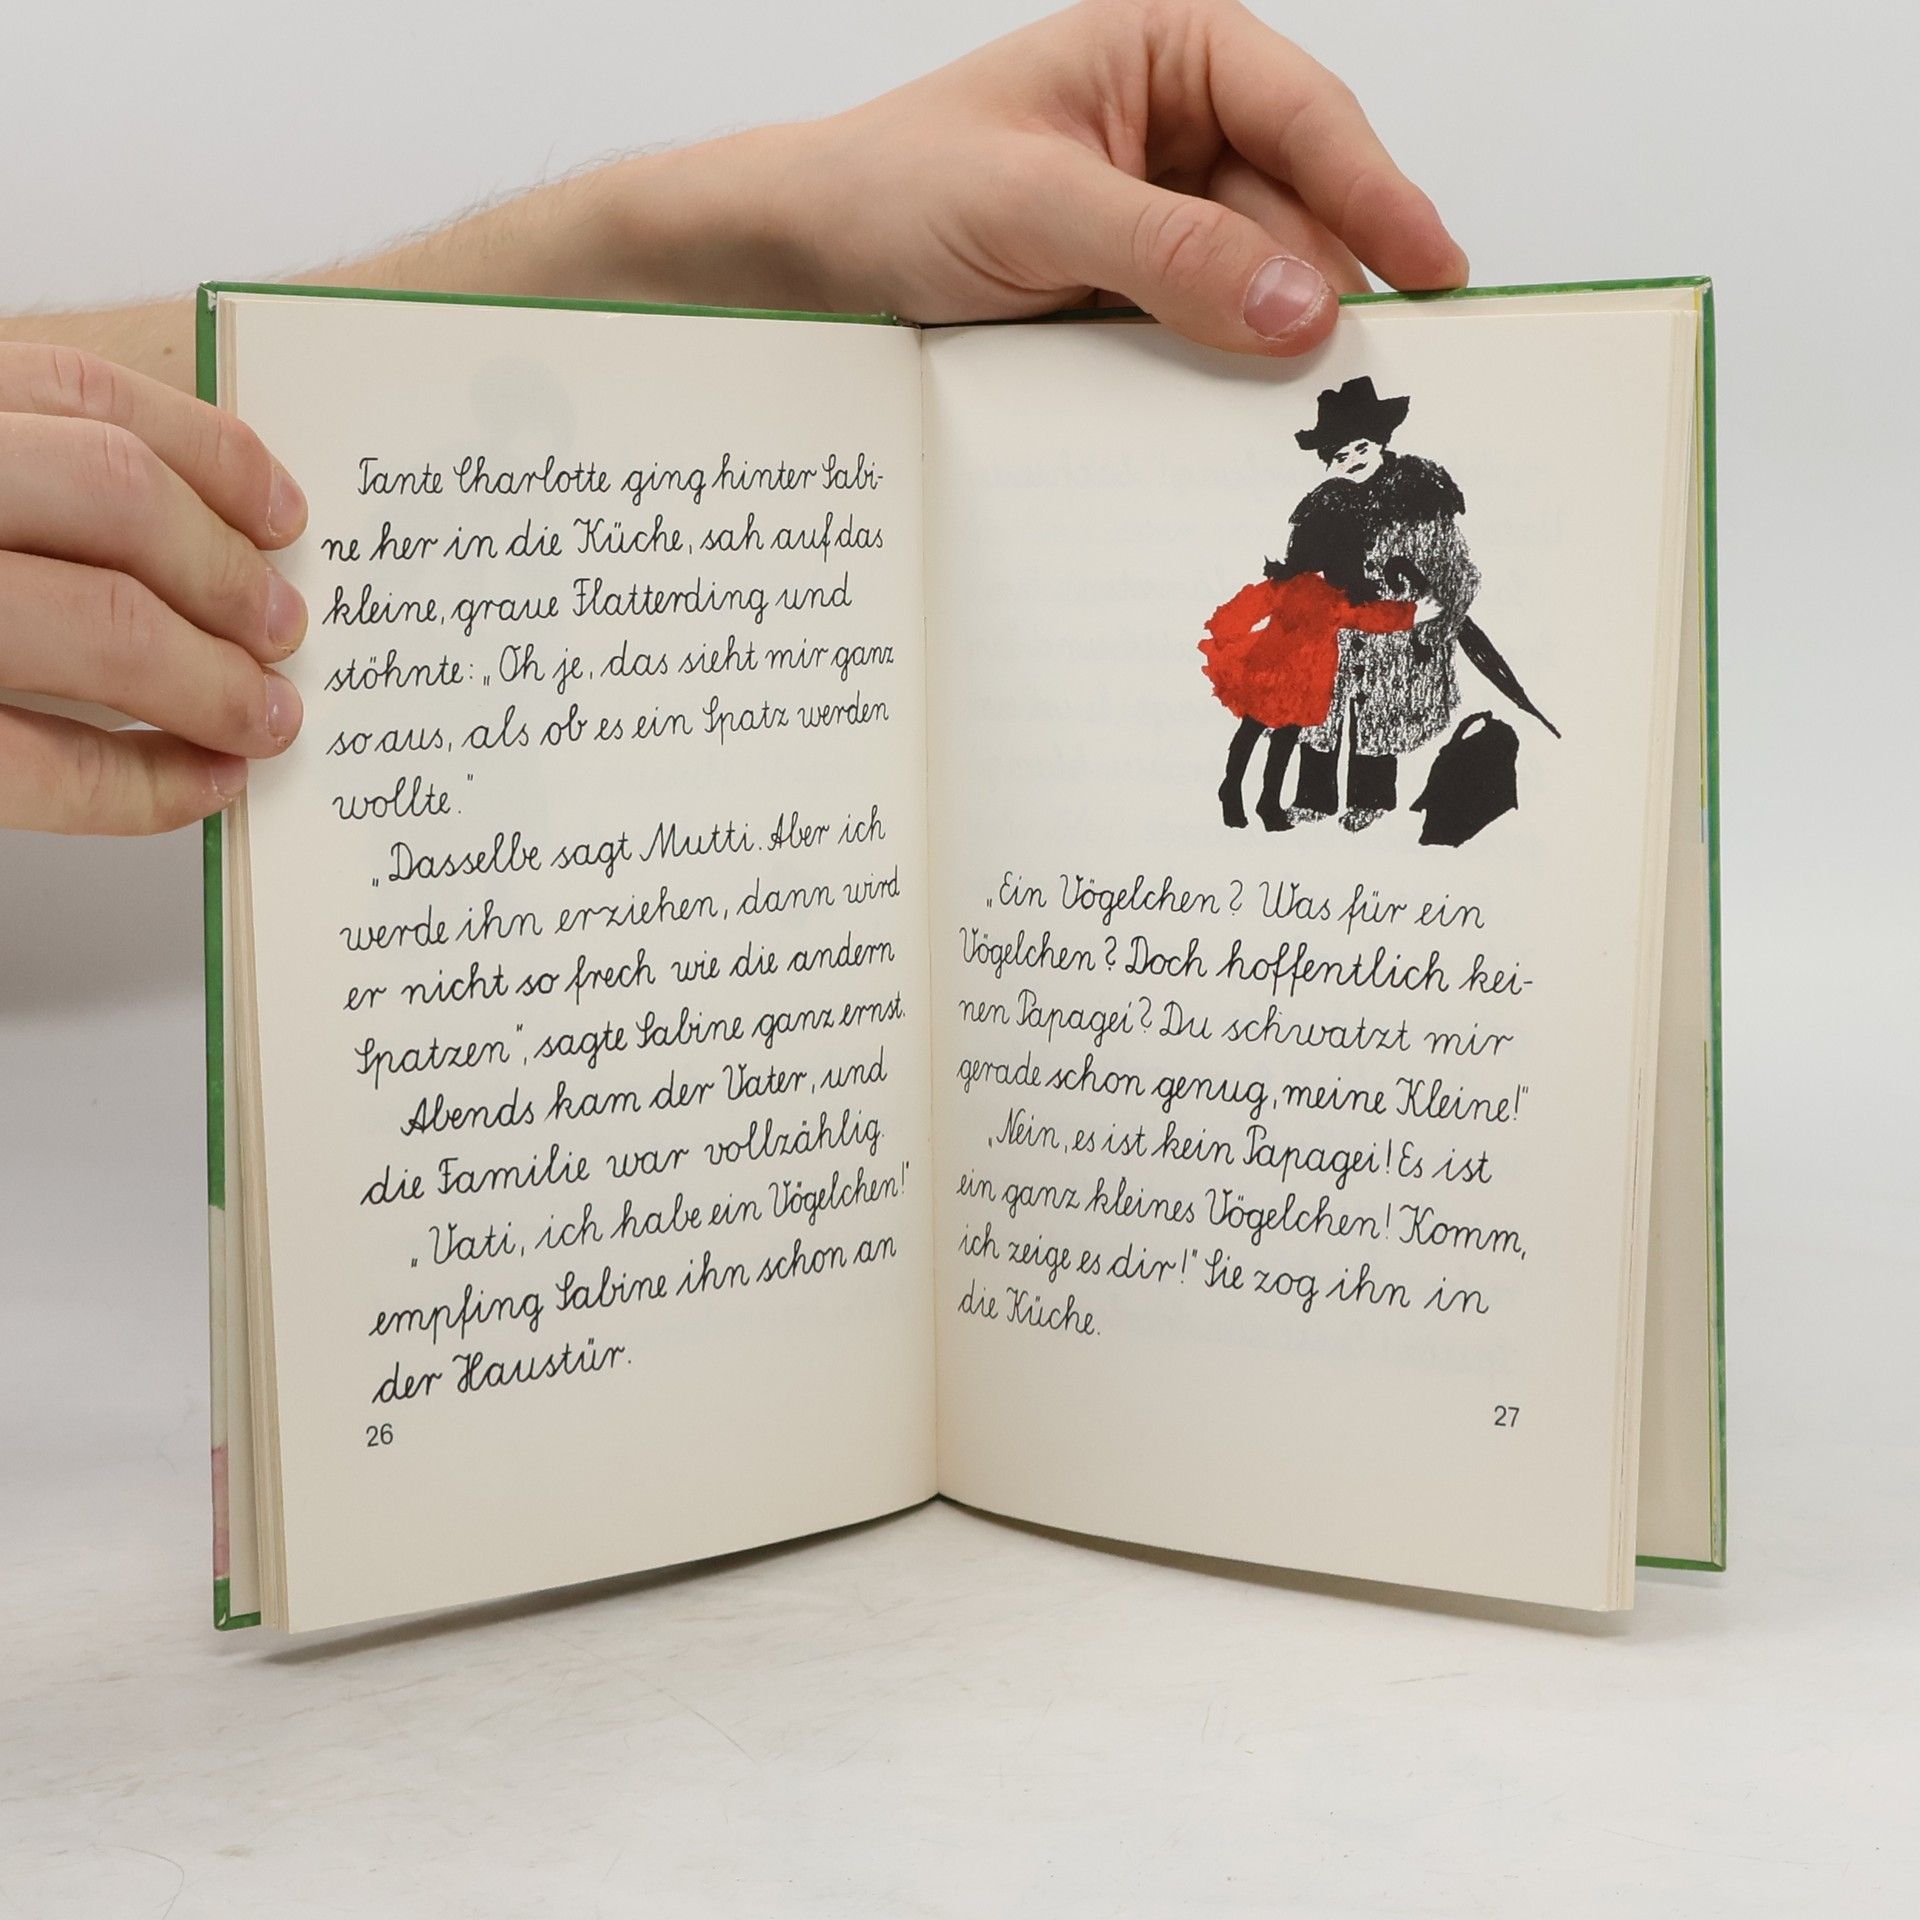 Tante Charlotte ging hinter Sabi-
ne her in die Küche, sah auf das
kleine, graue Flatterding und
stöhnte: „Oh je, das sieht mir ganz
so aus, als ob es ein Spatz werden
wollte."
„Dasselbe sagt Mutti. Aber ich
werde ihn erziehen, dann wird
er nicht so frech wie die andern
Spatzen", sagte Sabine ganz ernst.
Abends kam der Vater, und
die Familie war vollzählig.
„Vati, ich habe ein Vögelchen!"
empfing Sabine ihn schon an
der Haustür.
26
„Ein Vögelchen? Was für ein
Vögelchen? Doch hoffentlich kei-
nen Papagei? Du schwatzt mir
gerade schon genug, meine Kleine!"
„Nein, es ist kein Papagei! Es ist
ein ganz kleines Vögelchen! Komm,
ich zeige es dir!" Sie zog ihn in
die Küche.
27